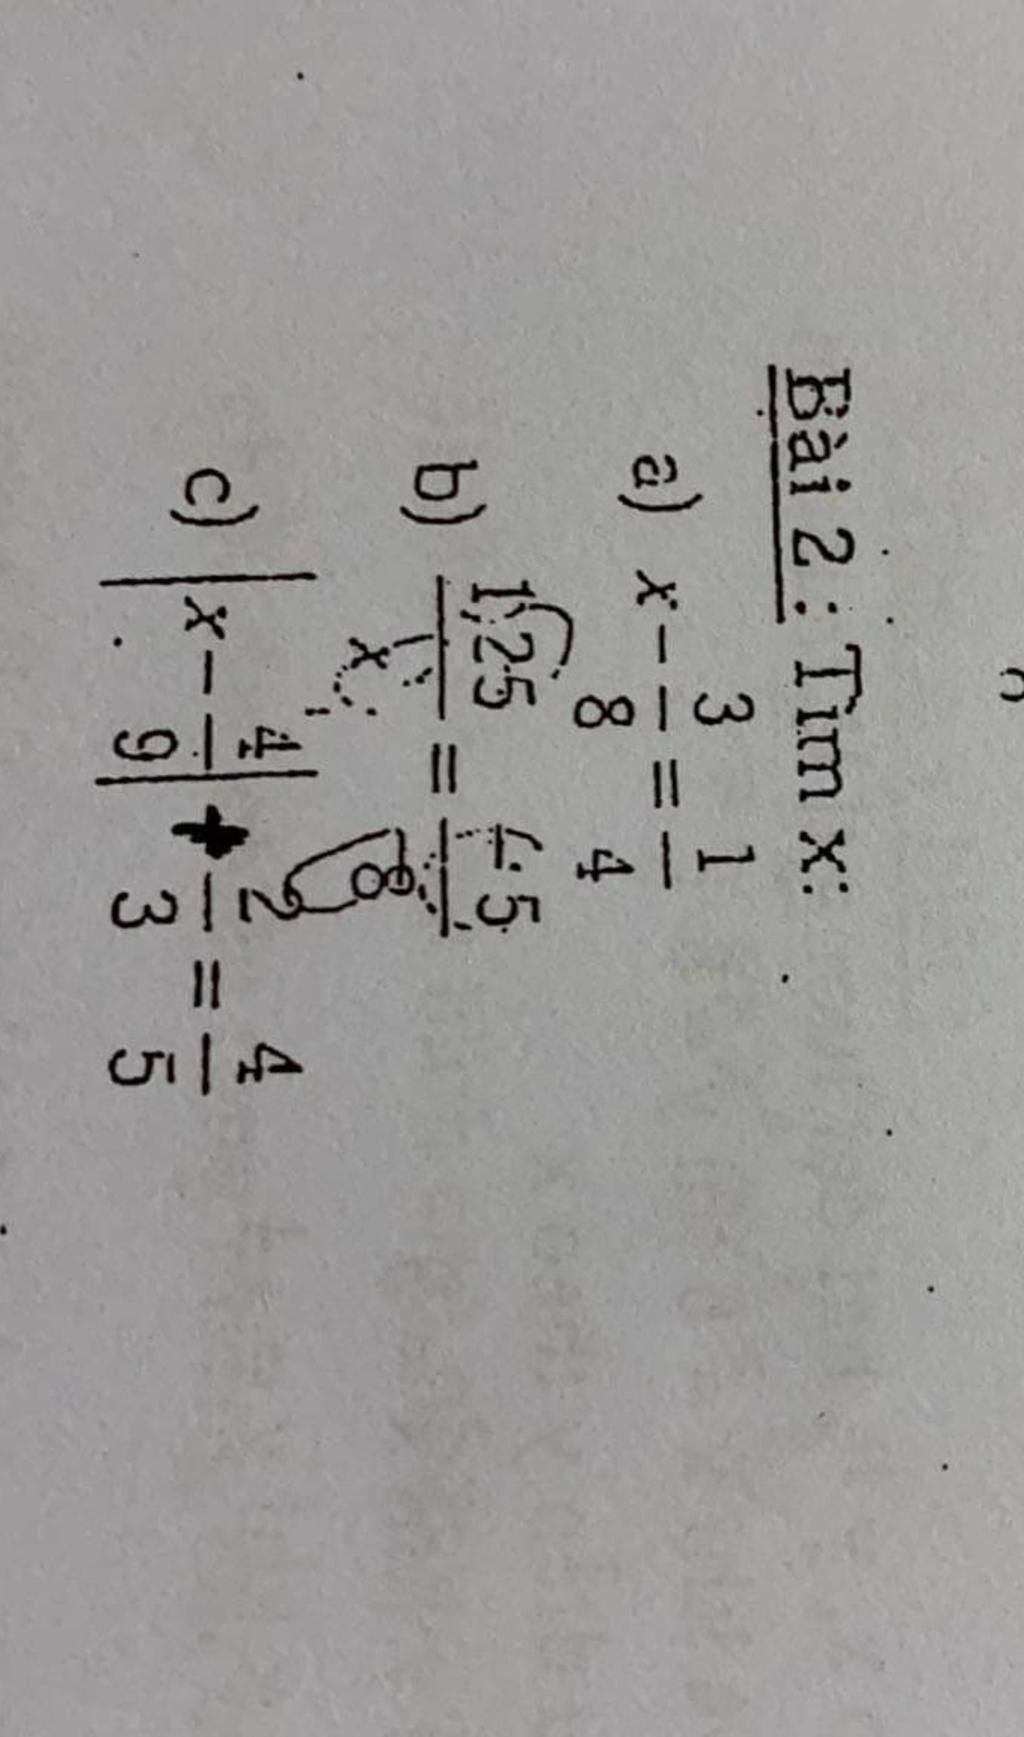 Bài 2 : Tìm x:
a) x - 3/8 = 1/4
b) 1,25/x = -5/8
c) |x - 4/9| + 2/3 = 4/5